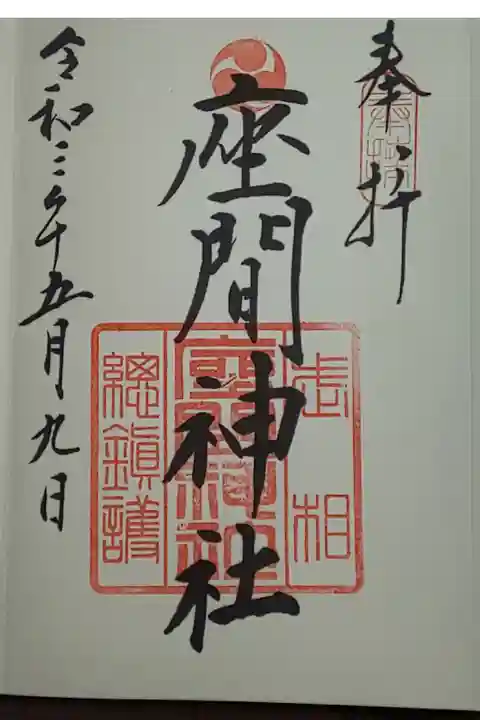 奉拝
座間神社
武相
座間神社
總鎮護
令和三年五月九日